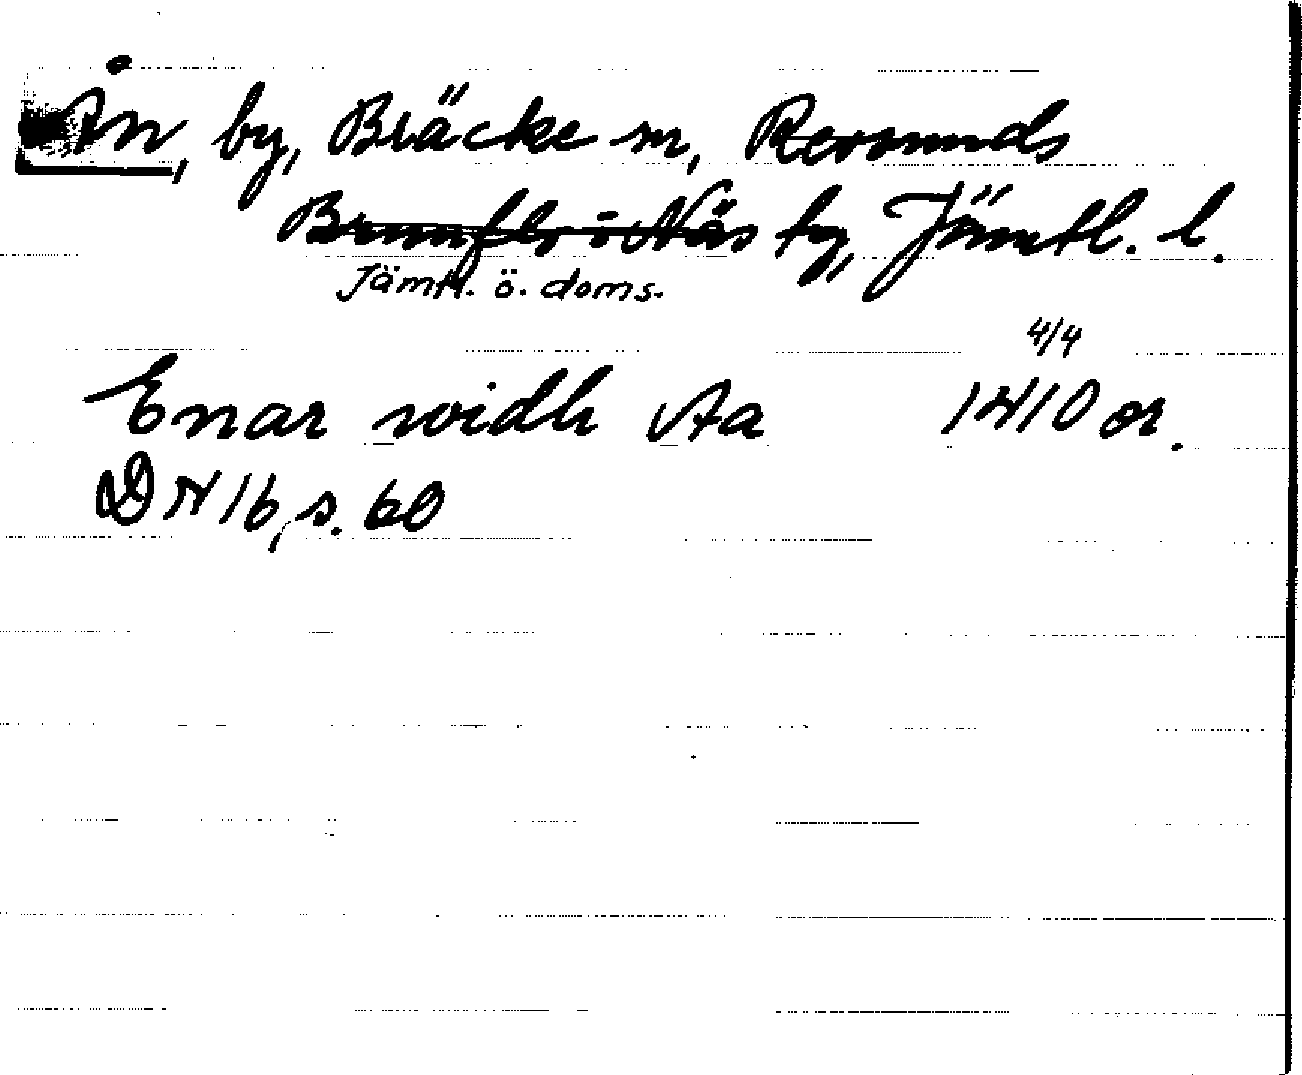 Ån, by, Bräcke sn, Revsunds
Brunflo o Näs tg, Jämtl. l.
Jämtl. ö. doms.
4/4
Enar widh Aa 1410 or.
DN 16, s. 60